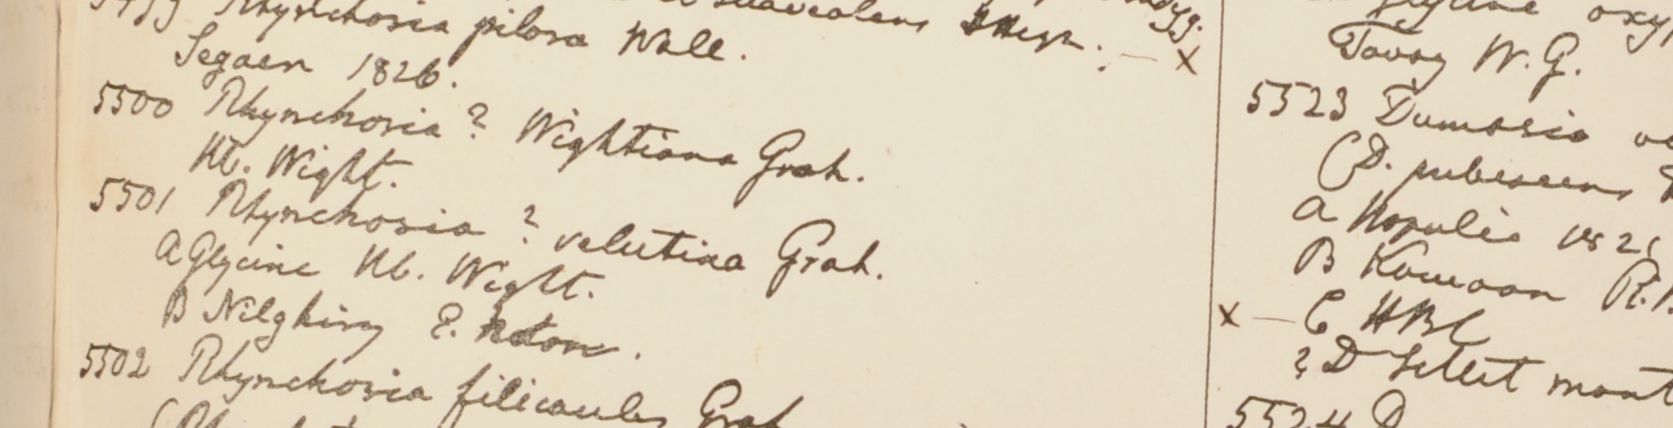 Rhynchosia pilosa Wall.
Segaen 1826.
5500 Rhynchosia ? Wightiana Grah.
Hb. Wight.
5501 Rhynchosia ? velutina Grah.
A Glycine Hb. Wight.
B Nilghiry E. Noton.
5502 Rhynchosia filicaulis Grah
Tavoy W. G.
5523 Dumasia
(D. pubescens
a Napalia 182
B Kamaon R.
x — C HBC
? D Sillet mont
5524 D